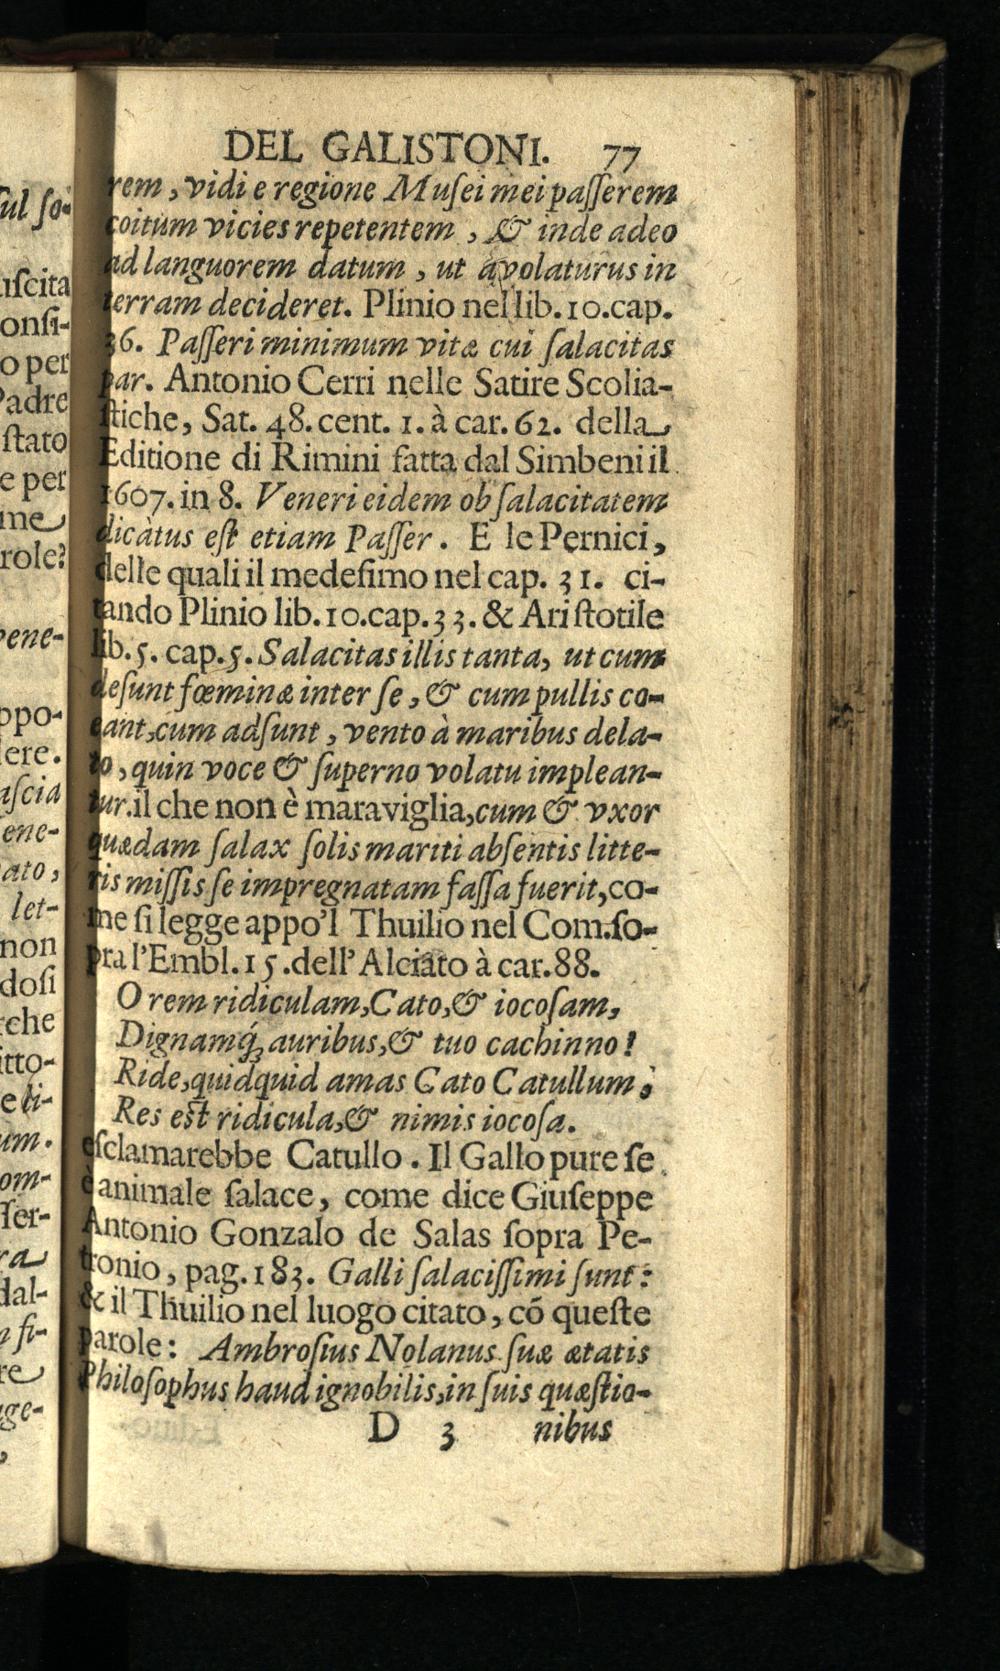 DEL GALISTONI. 77
rem, vidi e regione Muſei mei paſſerem
coitum vicies repetentem, & inde adeo
ad languorem datum, ut avolaturus in
terram decideret. Plinio nel lib.10.cap.
36. Paſſeri minimum vitæ cui ſalacitas
par. Antonio Cerri nelle Satire Scolia-
ſtiche, Sat. 48. cent. 1. à car. 62. della
Editione di Rimini fatta dal Simbeni il
1607. in 8. Veneri eidem ob ſalacitatem
dicàtus eſt etiam Paſſer. E le Pernici,
delle quali il medeſimo nel cap. 31. ci-
tando Plinio lib.10.cap.33. & Ariſtotile
lib.5. cap.5. Salacitas illis tanta, ut cum
deſunt fœminæ inter ſe, & cum pullis co-
eant, cum adſunt, vento à maribus dela-
to, quin voce & ſuperno volatu implean-
tur. il che non è maraviglia, cum & vxor
quædam ſalax ſolis mariti abſentis litte-
ris miſſis ſe impregnatam faſſa fuerit, co-
me ſi legge appo'l Thuilio nel Com. ſo-
pra l'Embl. 15. dell' Alciato à car. 88.
O rem ridiculam, Cato, & iocoſam,
Dignamq́; auribus, & tuo cachinno!
Ride, quidquid amas Cato Catullum;
Res eſt ridicula, & nimis iocoſa.
eſclamarebbe Catullo. Il Gallo pure ſe
è animale ſalace, come dice Giuſeppe
Antonio Gonzalo de Salas ſopra Pe-
tronio, pag. 183. Galli ſalaciſſimi ſunt:
& il Thuilio nel luogo citato, cõ queſte
parole: Ambroſius Nolanus ſuæ ætatis
Philoſophus haud ignobilis, in ſuis quæſtio-
D 3 nibus